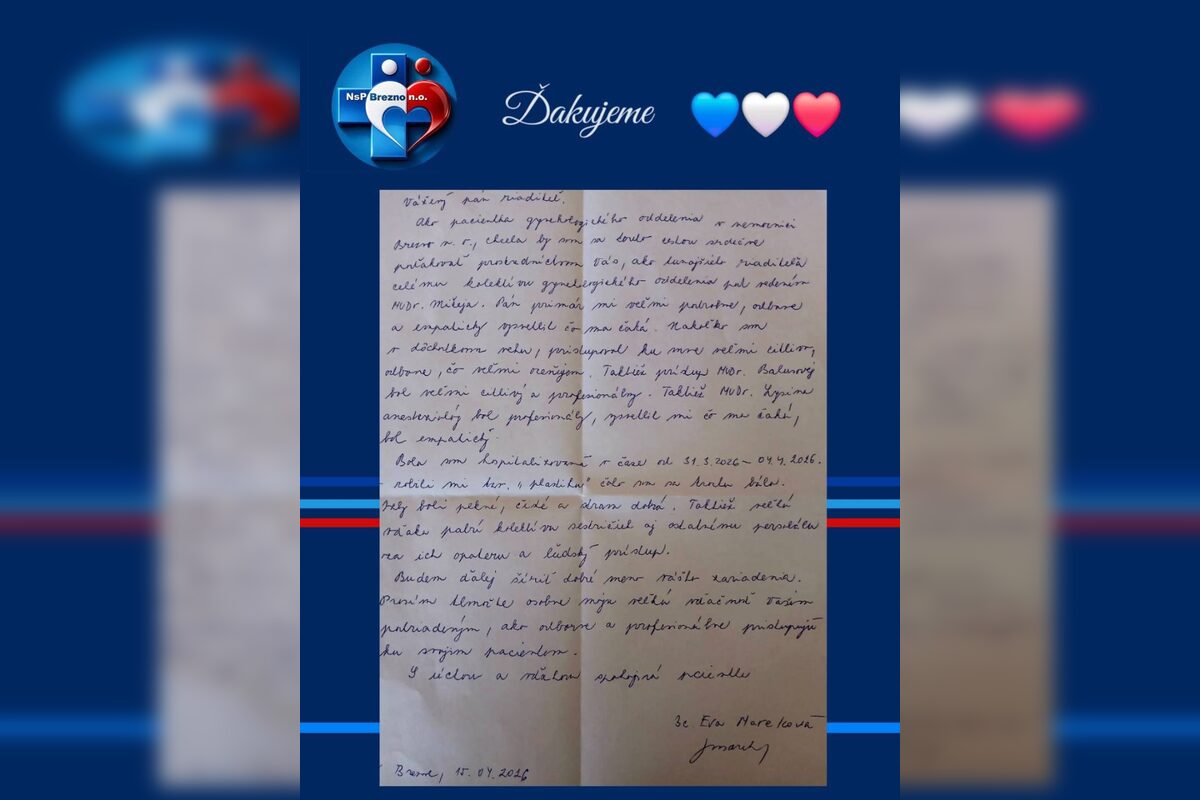 NsP Brezno n.o.
Ďakujeme
Vážený pán riaditeľ.
Ako pacientka gynekologického oddelenia v nemocnici
Brezno n. o., chcela by som sa touto cestou srdečne
poďakovať prostredníctvom Vás, ako tunajšieho riaditeľa
celému kolektívu gynekologického oddelenia pod vedením
MUDr. Pán primár mi veľmi podrobne, odborne
a empaticky vysvetlil čo ma čaká. Nakoľko som
v dôchodkovom veku, pristupoval ku mne veľmi citlivo,
odborne, čo veľmi oceňujem. Taktiež prístup MUDr. Balusovej
bol veľmi citlivý a profesionálny. Taktiež MUDr. Lysina
anesteziológ bol profesionály, vysvetlil mi čo ma čaká,
bol empatický.
Bola som hospitalizovaná v čase od 31.3.2026 - 04.4.2026.
robili mi tzv. "plastiku" čoho som sa trochu bála.
Izby boli pekné, čisté a strava dobrá. Taktiež veľká
vďaka patrí kolektívu sestričiek aj ostatnému personálu
za ich opateru a ľudský prístup.
Budem ďalej šíriť dobré meno vášho zariadenia.
Prosím tlmočte osobne moju veľkú vďačnosť Vašim
podriadeným, ako odborne a profesionálne pristupujú
ku svojim pacientom.
S úctou a vďakou spokojná pacientka
Eva Mareková
Brezno, 15.04.2026